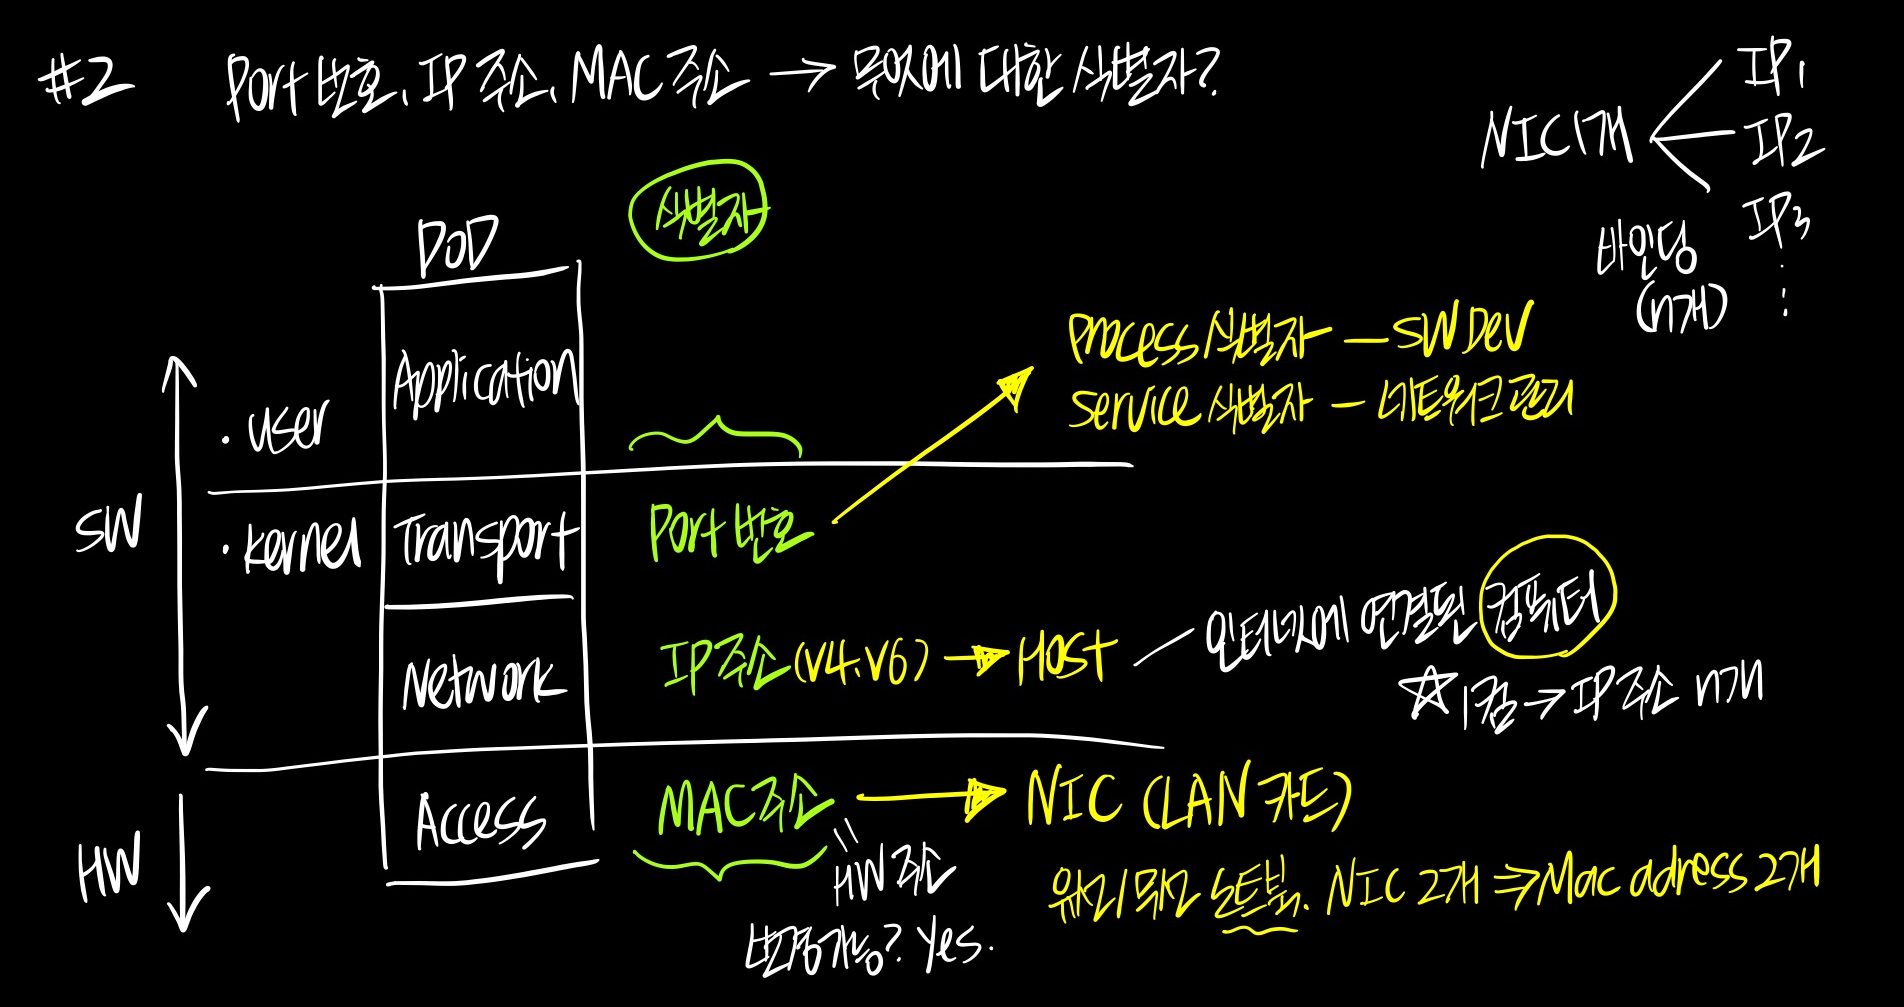 #2 Port 번호, IP 주소, MAC 주소 → 무엇에 대한 식별자?
NIC 1개
IP1
IP2
IP3
⋮
바인딩
(n개)
식별자
DoD
Application
Transport
Network
Access
SW
HW
· user
· kernel
Port 번호
Process 식별자 — SW Dev
Service 식별자 — 네트워크 관리
IP 주소 (v4, v6) → Host — 인터넷에 연결된 컴퓨터
☆ 1컴 → IP 주소 n개
MAC 주소 → NIC (LAN 카드)
유선/무선 노트북. NIC 2개 ⇒ Mac adress 2개
=
HW 주소
변경가능? Yes.